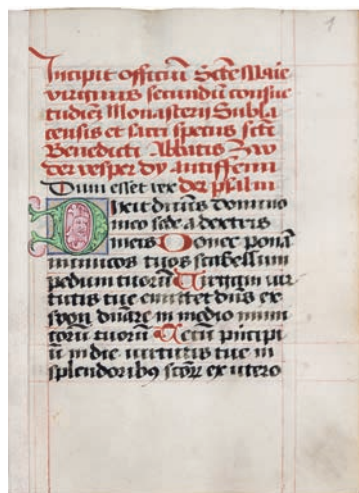 1
Incipit officiū Scte Marie
virginis secundū consue
tudinē Monasterii Subla
censis et sacri specus scti
Benedicti Abbatis Zw
der vesper dy antiffenn
Dum esset rex der psalm
Dixit dominus domino
meo sede a dextris
meis Donec ponā
inimicos tuos scabellum
pedum tuorū Virgam vir
tutis tue emittet dn̄s ex
syon dn̄are in medio inimi
corū tuorū Tecū principi
ū in die virtutis tue in
splendoribꝰ sctoꝝ ex utero